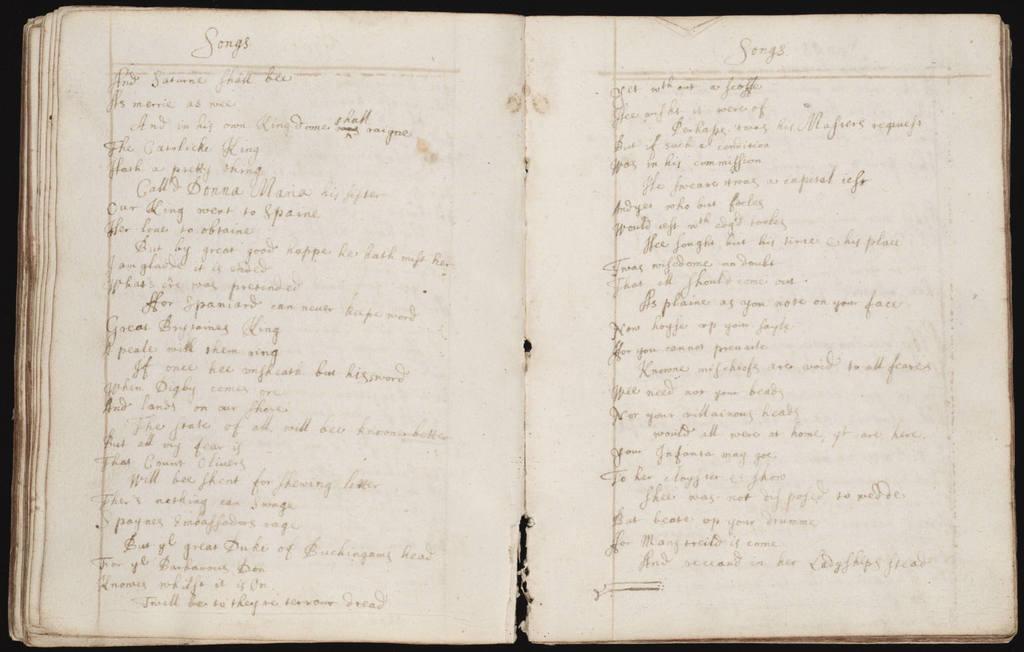 Songs
And Saturne shall bee
As merrie as wee
And in his own Kingdome shall raigne
The Catolicke King
Hath a pretty thing
Call'd Donna Maria his sister
Our King went to Spaine
Her loue to obtaine
But by great good happe he hath mist her
I am gladde it is ended
Whats ere was pretended
For Spaniard can neuer keepe word
Great Brytaines King
A peale will them ring
If once hee vnsheath but his sword
When Digby comes ore
And lands on our shore
The state of all will bee knowne better
But all my fear is
That Count Oliuers
Will bee shent for shewing letter
Ther's nothing can swage
Spaynes Embassadors rage
But yͤ great Duke of Buckingams head
For yͤ Barbarous Don
Knowes whilst it is On
Twill be to theyre terrour dread
Songs
Yet wth out a scoffe
Hee wisht it were of
Perhaps twas his Masters request
But if such a condition
Was in his commission
He sweare twas a capital iest
And yet who but fooles
Would iest wth edg'd tooles
Hee sought but his time & his place
Twas wisdome no doubt
That itt should come out
As plaine as you nose on your face
Now hoyse vp your sayls
For you cannot preuaile
Knowne mischiefs are void to all feares
Wee need not your beads
Nor your villainous heads
would all were at home yt are here.
Your Infanta may goe
To her cloyster &
Shee was not disposed to wedde
But beate vp your drumme
For Mansfeild is come
And in her Ladyships stead